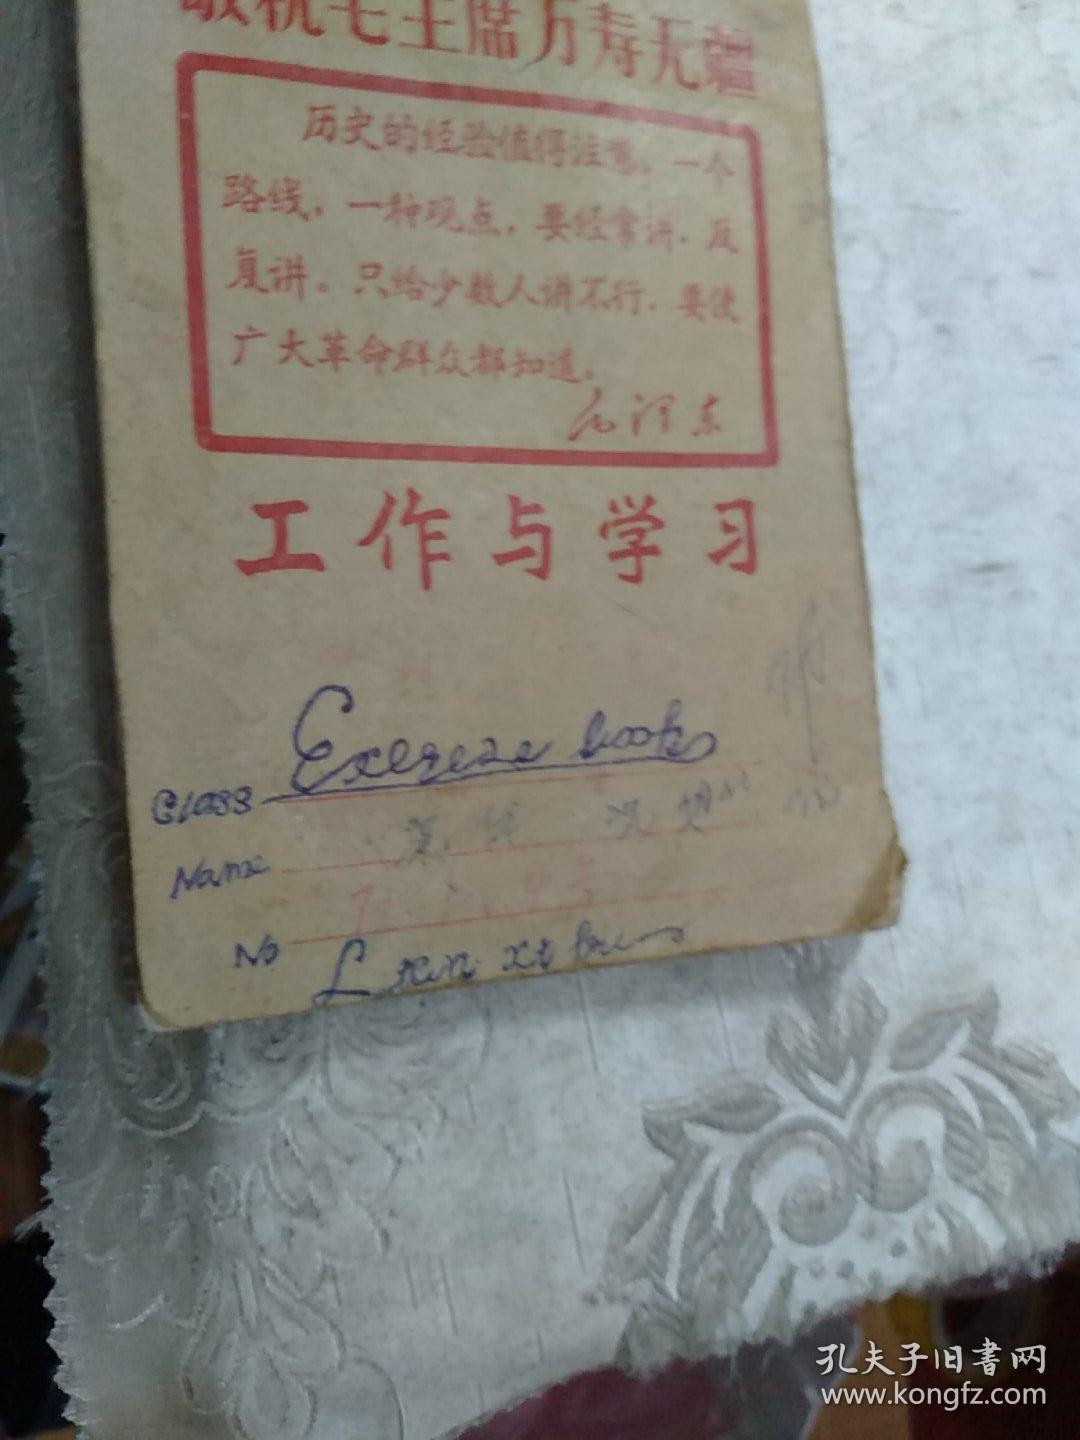 敬祝毛主席万寿无疆
历史的经验值得注意。一个
路线，一种观点，要经常讲，反
复讲。只给少数人讲不行，要使
广大革命群众都知道。
毛泽东
工作与学习
Exereize books
Class
Name
No
孔夫子旧書网
www.kongfz.com